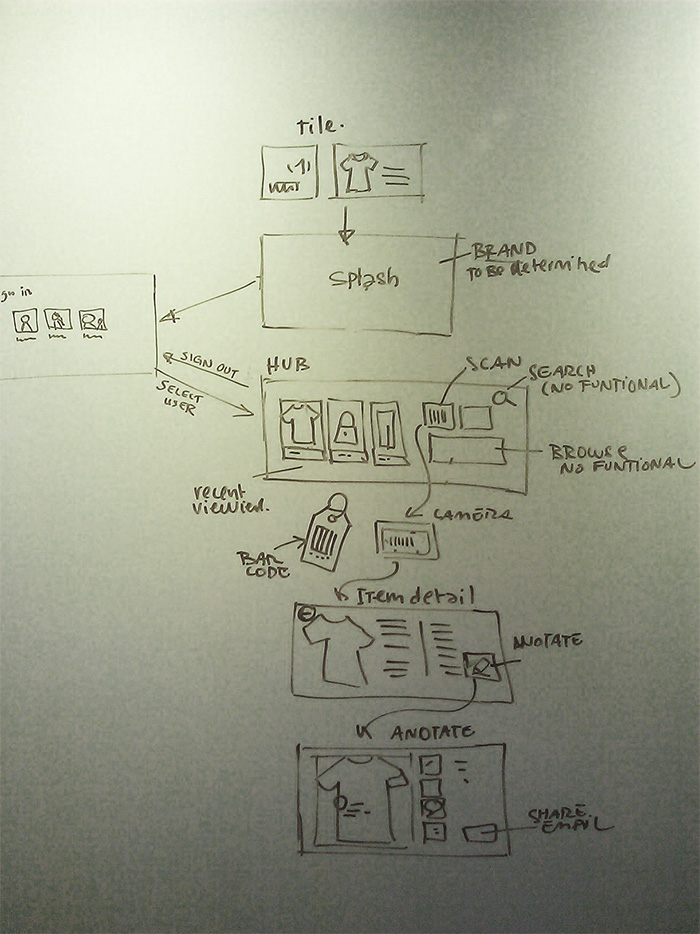 tile.
splash
BRAND
TO BE determined
gn in
SIGN OUT
SELECT
USER
HUB
SCAN
SEARCH
(NO FUNTIONAL)
BROWSE
NO FUNTIONAL
recent
viewied.
BAR
CODE
CAMERA
Item detail
ANOTATE
ANOTATE
SHARE.